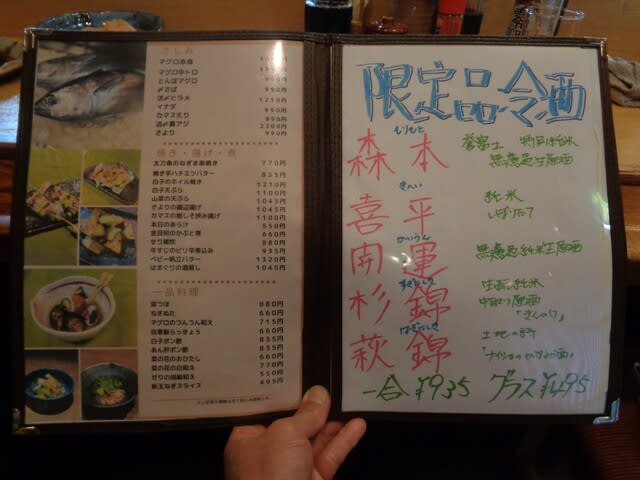 さしみ
マグロ赤身
マグロ中トロ
とんぼマグロ
〆さば 990円
活〆ヒラメ 1210円
イナダ 990円
カマス炙り 990円
活〆真アジ 2200円
さより 990円
焼き・揚げ・煮
太刀魚のねぎま串焼き 770円
焼き芋ハチミツバター 825円
白子のホイル焼き 1210円
白子の天ぷら 1100円
山菜の天ぷら 1045円
さよりの磯辺揚げ 1045円
カマスの梅しそ挟み揚げ 1100円
本日のあら汁 550円
金目鯛のかぶと煮 660円
せり雑炊 880円
牛すじのピリ辛煮込み 935円
ベビー帆立バター 1320円
はまぐりの酒蒸し 1045円
一品料理
湯つぼ 880円
ねぎぬた 660円
マグロのつんつん和え 715円
自家製らっきょう 660円
白子ポン酢 835円
あん肝ポン酢 835円
菜の花のおひたし 660円
菜の花の白和え 770円
せりの胡麻和え 550円
新玉ねぎスライス 495円
限定品冷酒
もりもと
森本 誉富士 特別純米
無濾過生原酒
きへい
喜平 純米
しぼりたて
かいうん
開運 無濾過純米生原酒
すぎにしき
杉錦 生酛純米
中取り原酒
「きんの介」
はぎにしき
萩錦 土地の詩
一合 ¥935 グラス ¥495